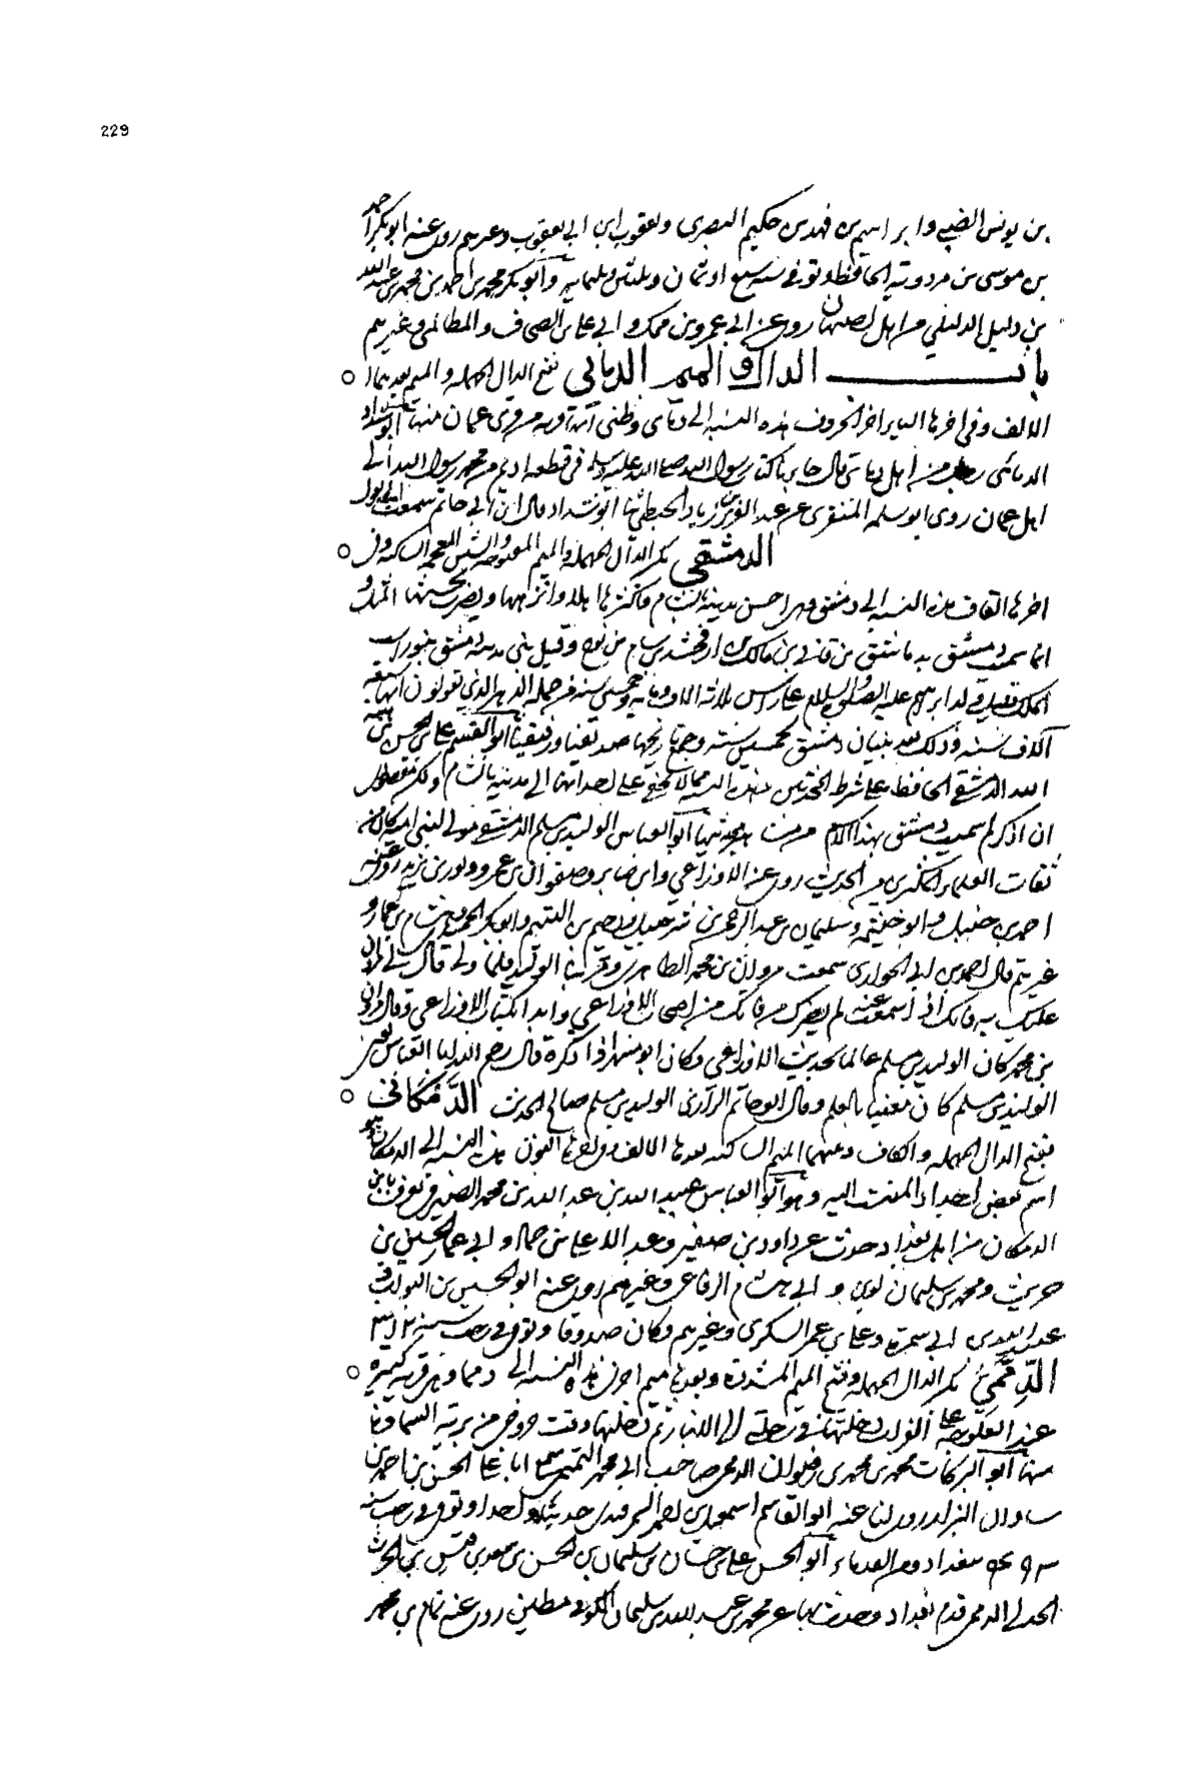 229
بن يونس الضبي وابراهيم بن فهد بن حكيم البصري ويعقوب ابن ابي يعقوب وغيرهم روى عنه ابو بكر احمد
بن موسى بن مردويه الحافظ وتوفي سنة سبع او ثمان وثلثين وثلثمايه وابو بكر محمد بن احمد بن محمد بن عبد الله
بن دليل الدليلي من اهل اصبهان روى عن ابي عمرو بن ممك وابي علي الصحاف والمظالمي وغيرهم
باب الدال والميم الدمائي بفتح الدال المهملة والميم بعدهما
الالف وفي اخرها الياء اخر الحروف هذه النسبة الى دما وظني انها قرية من قرى عمان منها ابو شداد
الدمائي من اهل دما قال جاءنا كتاب رسول الله صلى الله عليه وسلم في قطعة ادم من محمد رسول الله الى
اهل عمان روى ابو سلمه المنقري عن عبد العزيز بن زياد الحبطي ثنا ابو شداد قال ابن ابي حاتم سمعت ابي يقول
الدمشقي بكسر الدال المهملة والميم المفتوحة والشين المعجمة الساكنة وفي
اخرها القاف هذه النسبة الى دمشق وهي احسن مدينة بالشام واكثرها اهلا وانزهها ويضرب بحسنها المثل و
انما سميت دمشق بدماشق بن قاني بن مالك بن ارفخشد بن سام بن نوح وقيل بنى مدينة دمشق بيوراسب
الملك وقيل ولد ابرهيم عليه الصلوة والسلام على راس ثلاثة الاف ومايه وخمسين سنة من جملة الدهر الذي يقولون انها سبعة
آلاف سنه وذلك بعد بنيان دمشق بخمس سنين وجمع تاريخها صديقنا ورفيقنا ابو القسم علي بن الحسن بن هبة
الله الدمشقي الحافظ على شرط المحدثين وهذه النسبة مما لا يخفى على احد انها الى مدينة بالشام ولكن مقصودي
ان اذكر لم سميت دمشق بهذا الاسم ومن محدثيها ابو العباس الوليد بن مسلم الدمشقي مولى لبني امية كان من
ثقات العلماء المكثرين من الحديث روى عن الاوزاعي وابن جابر وصفوان بن عمرو وثور بن يزيد روى عنه
احمد بن حنبل وابو خيثمه وسليمان بن عبد الرحمن بن شرحبيل وابو بكر الحميدي وهشام بن عمار و
غيرهم قال احمد بن ابي الحواري سمعت مروان بن محمد الطاطري قال لي مروان
عليك به فانك اذا سمعت منه لم يضرك من فاتك من اصحاب الاوزاعي وابدا بكتاب الاوزاعي وقال مروان
بن محمد كان الوليد بن مسلم عالما بحديث الاوزاعي وكان ابو مسهر اذا ذكره قال رحم الله ابا العباس يعني
الوليد بن مسلم كان معنيا بالعلم وقال ابو حاتم الرازي الوليد بن مسلم صالح الحديث الدَّمْكاني
بفتح الدال المهملة والكاف وبينهما الميم الساكنة بعدها الالف وفي اخرها النون هذه النسبة الى الدمكان وهو
اسم لبعض اجداد المنتسب اليه وهو ابو العباس عبيد الله بن عبد الله بن محمد الصيرفي يعرف بابن
الدمكان من اهل بغداد حدث عن داود بن صغير وعبد الاعلى بن حماد وابي عمار الحسين بن
حريث ومحمد بن سليمان لوين وابي هشام الرفاعي وغيرهم روى عنه ابو الحسين بن البواب و
عبد الله بن ابي سمرة وعلي بن عمر السكري وغيرهم وكان صدوقا وتوفي في رجب سنة
الدِّمَّمي بكسر الدال المهملة وفتح الميم المشددة وبعدها ميم اخرى هذه النسبة الى دمما وهي قرية كبيرة
عند الفلوجة على الفرات دخلتها في رحلتي الى الانبار ثم دخلتها وقت خروجي من برية السماوة
منها ابو البركات محمد بن محمد بن رضوان الدممي صاحب ابي محمد التميمي سمع ابا علي الحسن بن احمد بن
شاذان البزاز روى لنا عنه ابو القاسم اسمعيل بن احمد السمرقندي حديثا واحدا وتوفي في رجب سنة
ببغداد ومن القدماء ابو الحسن علي بن حسان بن سليمان بن الحسن بن سعد بن قيس بن الحرث
الجدلي الدممي قدم بغداد وحدث بها عن محمد بن عبد الله بن سليمان الكوفي مطين روى عنه تمام بن محمد